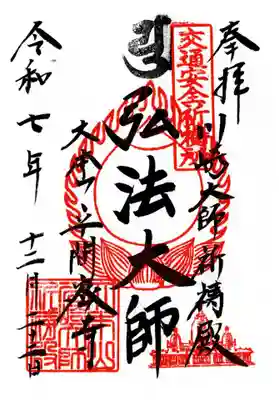 奉拝
川崎大師祈祷殿
交通安全祈祷所
弘法大師
大本山平間寺
令和七年
十二月